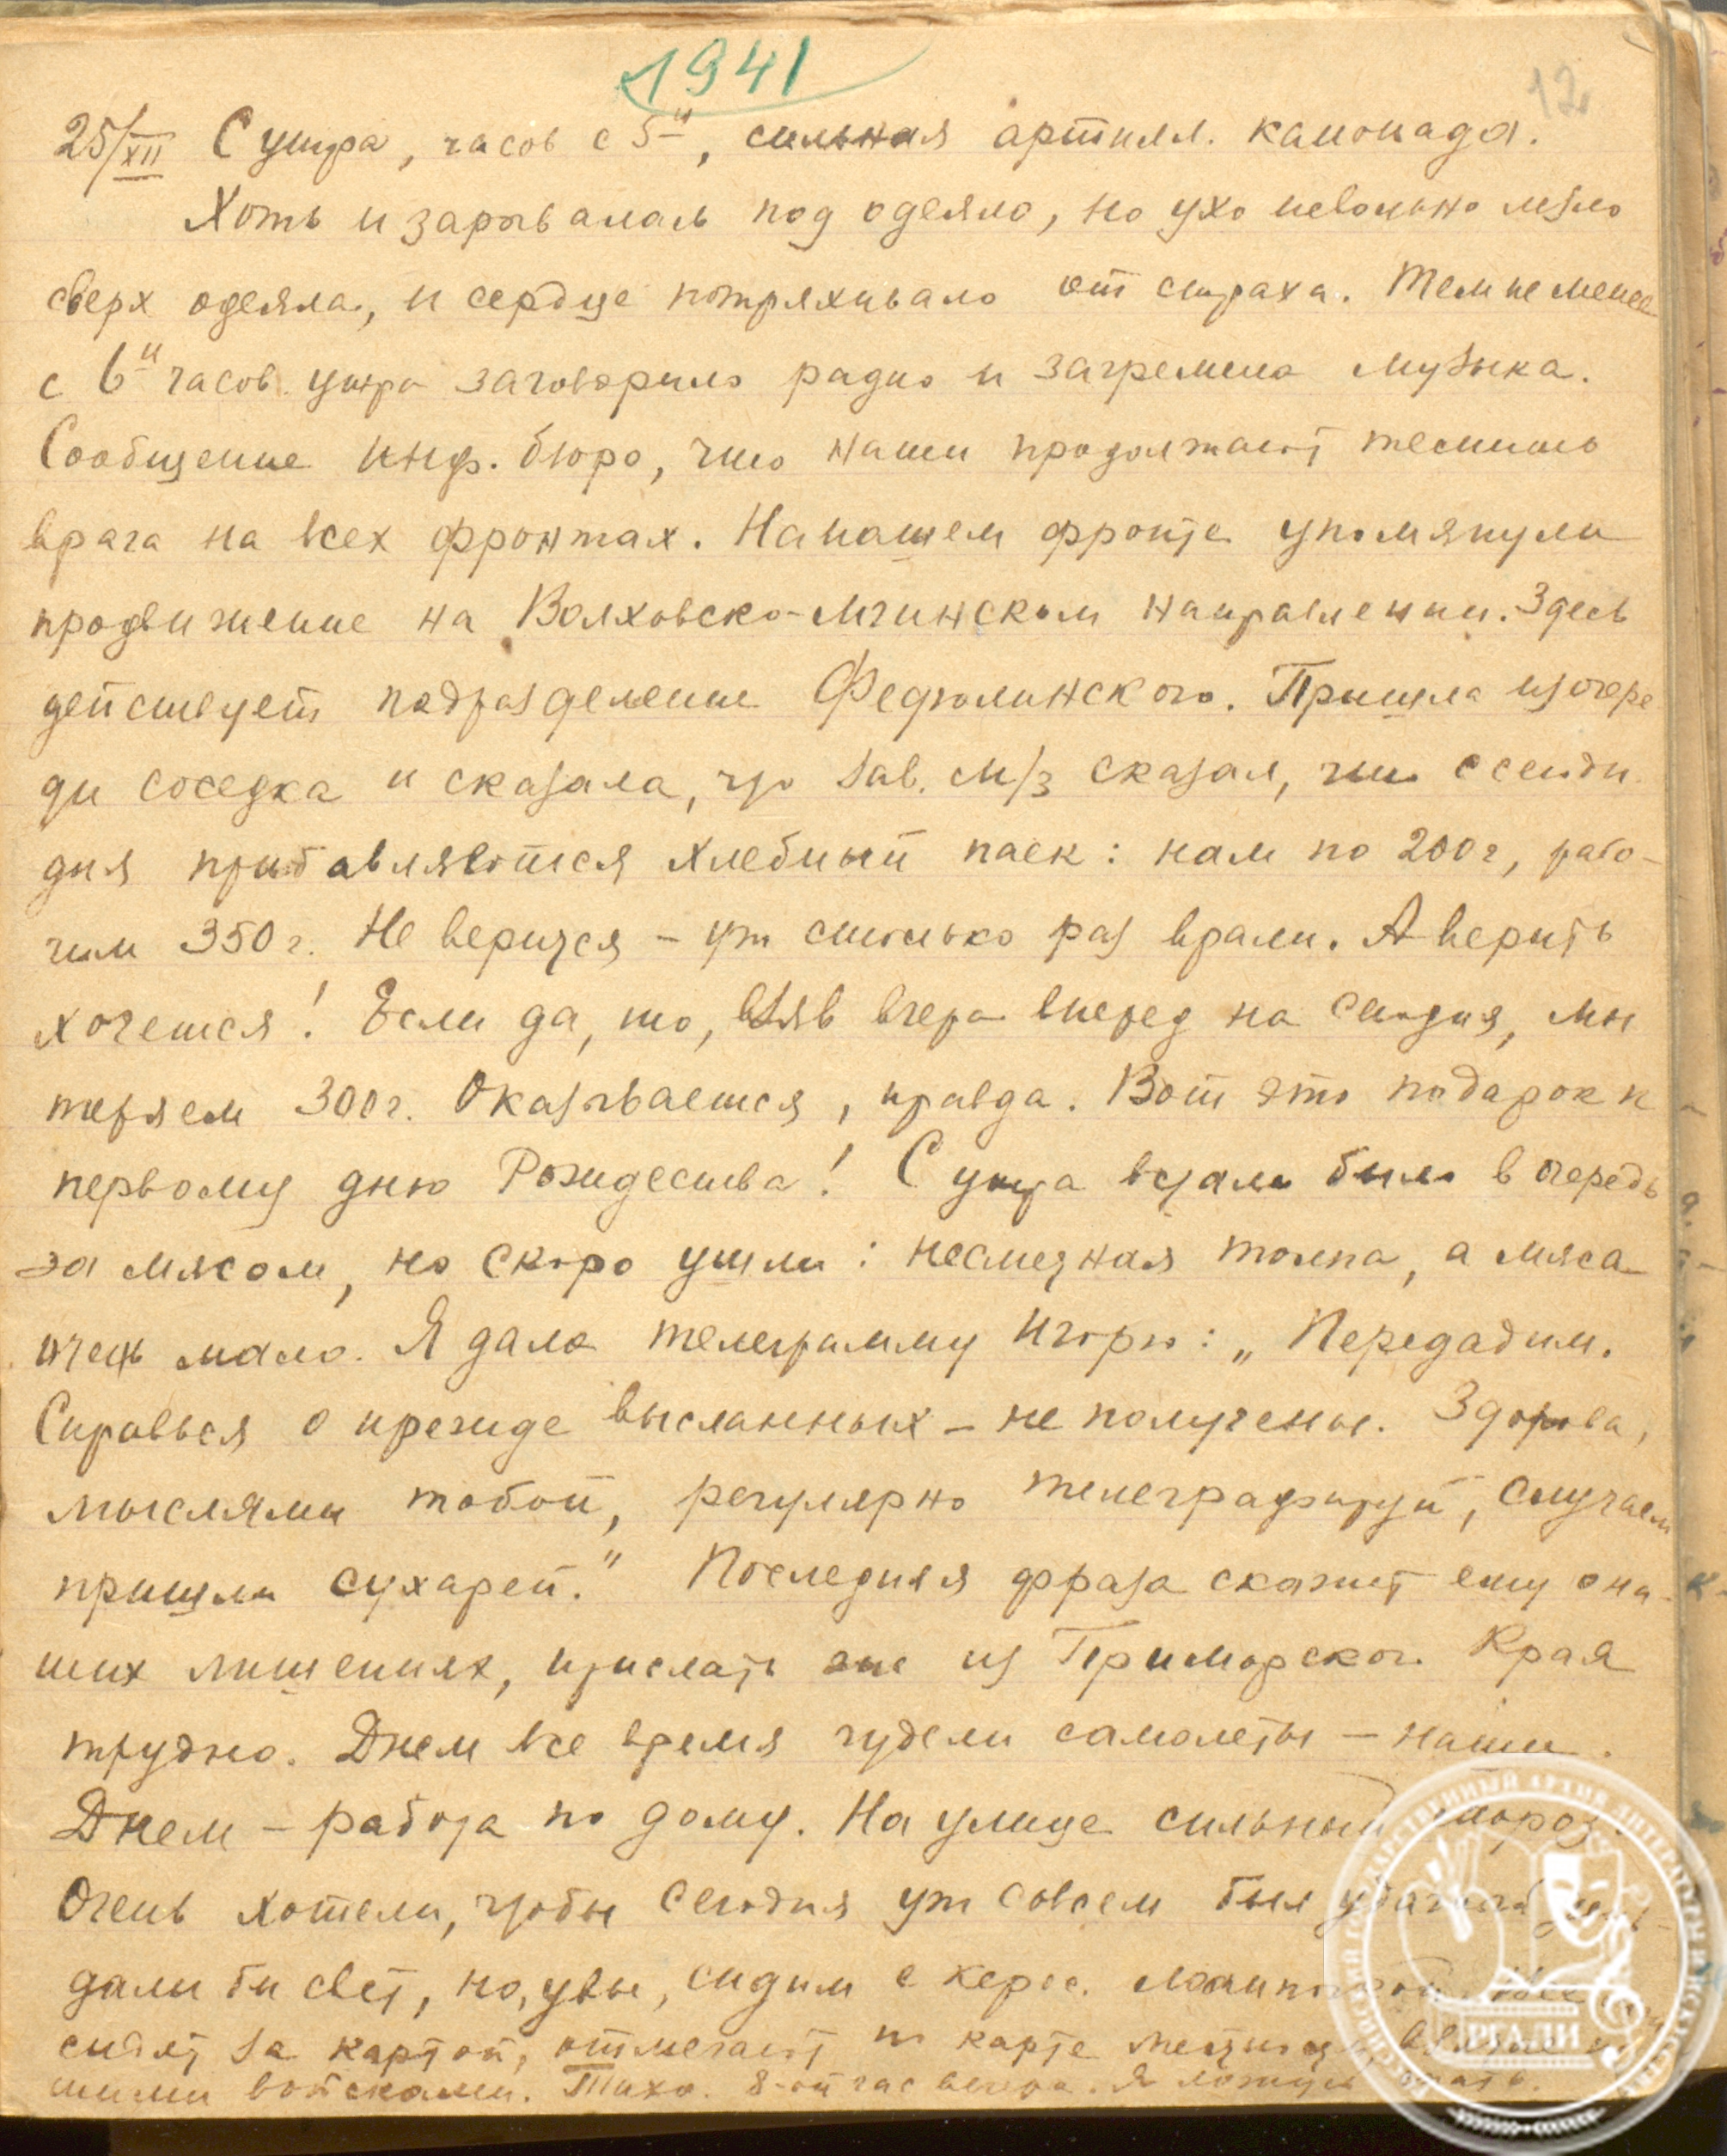 1941
12
25/XII С утра, часов с 5-и, сильная артилл. канонада.
Хоть и зарывалась под одеяло, но ухо невольно лезло
сверх одеяла, и сердце потряхивало от страха. Тем не менее
с 6-и часов утра заговорило радио и загремела музыка.
Сообщение инф. бюро, что наши продолжают теснить
врага на всех фронтах. На нашем фронте упомянули
продвижение на Волховско-Мгинском направлении. Здесь
действует подразделение Федюлинского. Пришла из очере
ди соседка и сказала, что зав. м/з сказал, что с сегод
дня прибавляется хлебный паек: нам по 200 г, рабо-
чим 350 г. Не верится – уж столько раз врали. А верить
хочется! Если да, то, взяв вчера вперед на сегодня, мы
теряем 300 г. Оказывается, правда. Вот это подарок к
первому дню Рождества! С утра встали было в очередь
за мясом, но скоро ушли: несметная толпа, а мяса
очень мало. Я дала телеграмму Игорю: „Передадим.
Справься о прежде высланных – не получены. Здорова,
мыслями тобой, регулярно телеграфируй, случаем
пришли сухарей." Последняя фраза скажет ему о на-
ших лишениях, прислать же из Приморског. Края
трудно. Днем все время гудели самолеты – наши.
Днем – работа по дому. На улице сильный мороз.
Очень хотели, чтобы сегодня уж совсем был
дали бы свет, но, увы, сидим с керос. лампочкой. Все
сидят за картой, отмечают по карте места, взятые на
шими войсками. Тихо. 8-ой час вечера. Я ложусь спать.
РГАЛИ